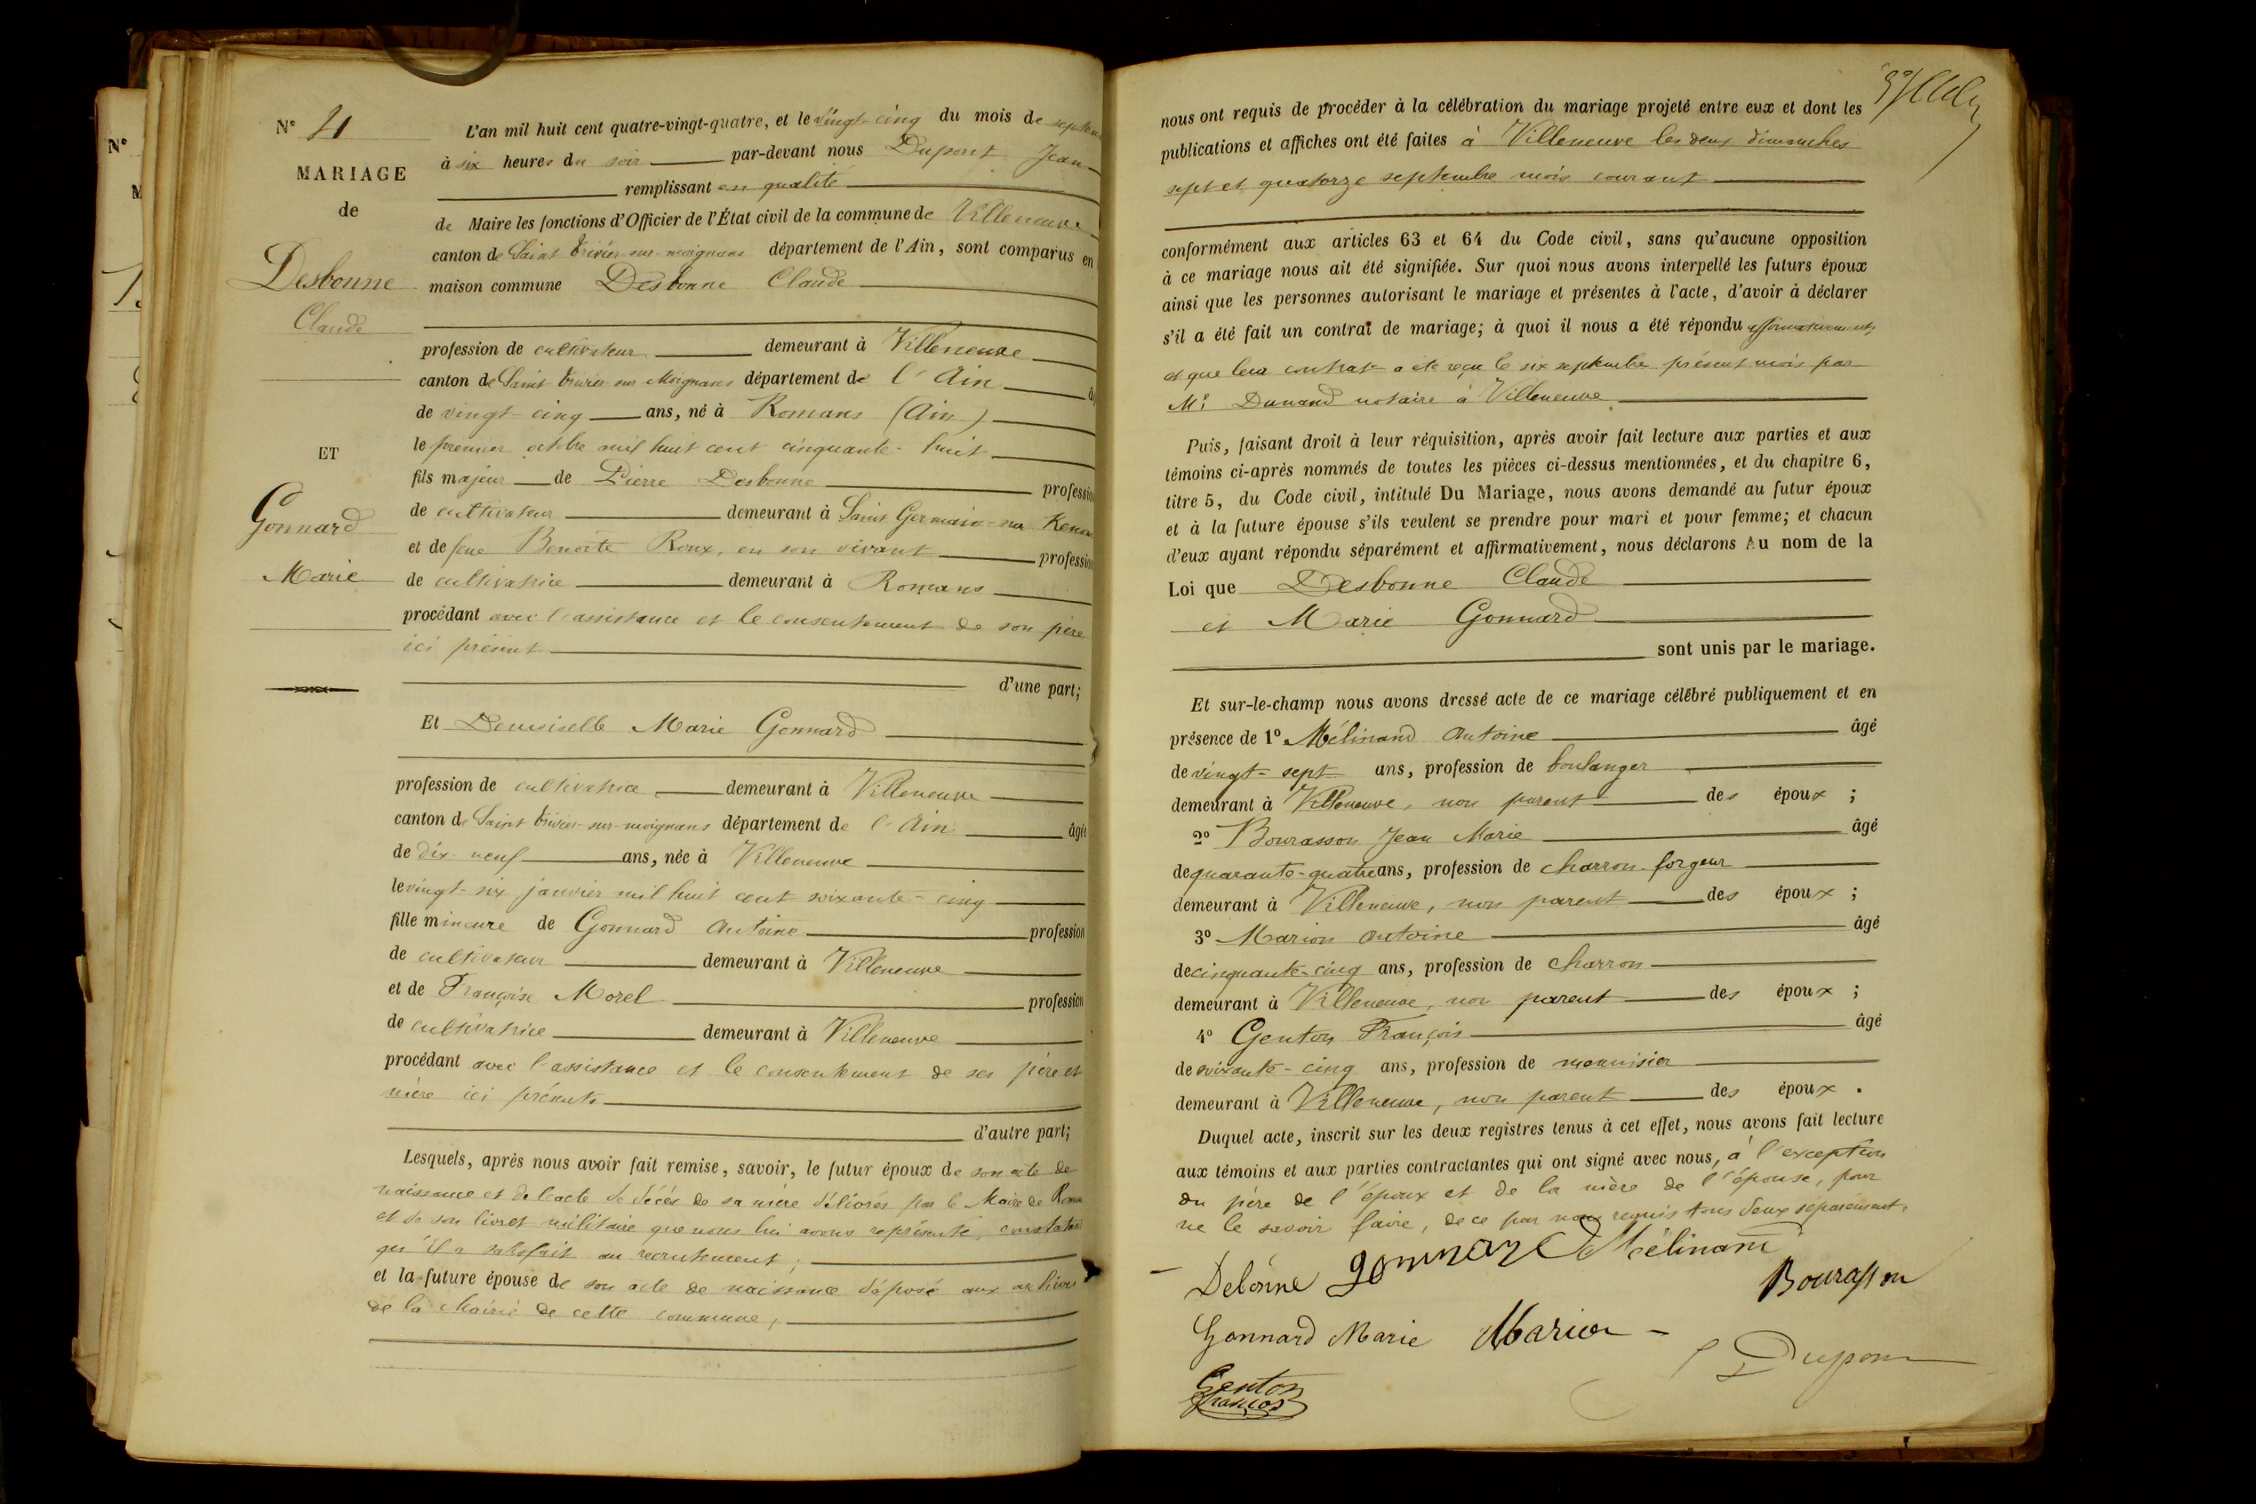 N° 4
MARIAGE
de
Desbonne
Claude
ET
Gonnard
Marie
L'an mil huit cent quatre-vingt-quatre, et le vingt-cinq du mois de septem
à six heures du soir par-devant nous Dupont Jean
remplissant en qualité
de Maire les fonctions d'Officier de l'État civil de la commune de Villeneuve
canton de Saint Trivier-sur-moignans département de l'Ain, sont comparus en
maison commune Desbonne Claude
profession de cultivateur demeurant à Villeneuve
canton de Saint Trivier sur Moignans département de l'Ain
de vingt cinq ans, né à Romans (Ain)
le premier octobre mil huit cent cinquante-huit
fils majeur de Pierre Desbonne profession
de cultivateur demeurant à Saint Germain-sur Renon
et de feue Benoîte Roux, en son vivant profession
de cultivatrice demeurant à Romans
procédant avec l'assistance et le consentement de son père
ici présent
d'une part;
Et Demoiselle Marie Gonnard
profession de cultivatrice demeurant à Villeneuve
canton de Saint Trivier-sur-moignans département de l'Ain âgée
de dix neuf ans, née à Villeneuve
le vingt-six janvier mil huit cent soixante-cinq
fille mineure de Gonnard Antoine profession
de cultivateur demeurant à Villeneuve
et de Françoise Morel profession
de cultivatrice demeurant à Villeneuve
procédant avec l'assistance et le consentement de ses père et
mère ici présents
d'autre part;
Lesquels, après nous avoir fait remise, savoir, le futur époux de son acte de
naissance et de l'acte de décès de sa mère délivrés par le Maire de Romans
et de son livret militaire que nous lui avons représenté, constatant
qu'il a satisfait au recrutement;
et la future épouse de son acte de naissance déposé aux archives
de la Mairie de cette commune,
nous ont requis de procéder à la célébration du mariage projeté entre eux et dont les
publications et affiches ont été faites à Villeneuve les deux dimanches
sept et quatorze septembre mois courant
conformément aux articles 63 et 64 du Code civil, sans qu'aucune opposition
à ce mariage nous ait été signifiée. Sur quoi nous avons interpellé les futurs époux
ainsi que les personnes autorisant le mariage et présentes à l'acte, d'avoir à déclarer
s'il a été fait un contrat de mariage; à quoi il nous a été répondu affirmativement,
et que leur contrat a été reçu le six septembre présent mois par
Me Dunand notaire à Villeneuve
Puis, faisant droit à leur réquisition, après avoir fait lecture aux parties et aux
témoins ci-après nommés de toutes les pièces ci-dessus mentionnées, et du chapitre 6,
titre 5, du Code civil, intitulé Du Mariage, nous avons demandé au futur époux
et à la future épouse s'ils veulent se prendre pour mari et pour femme; et chacun
d'eux ayant répondu séparément et affirmativement, nous déclarons Au nom de la
Loi que Desbonne Claude
et Marie Gonnard
sont unis par le mariage.
Et sur-le-champ nous avons dressé acte de ce mariage célébré publiquement et en
présence de 1° Mélinand Antoine âgé
de vingt-sept ans, profession de boulanger
demeurant à Villeneuve, non parent des époux ;
2° Bourasson Jean Marie âgé
de quarante-quatre ans, profession de charron-forgeur
demeurant à Villeneuve, non parent des époux ;
3° Marion Antoine âgé
de cinquante-cinq ans, profession de charron
demeurant à Villeneuve, non parent des époux ;
4° Genton François âgé
de soixante-cinq ans, profession de menuisier
demeurant à Villeneuve, non parent des époux .
Duquel acte, inscrit sur les deux registres tenus à cet effet, nous avons fait lecture
aux témoins et aux parties contractantes qui ont signé avec nous, à l'exception
du père de l'époux et de la mère de l'épouse, pour
ne le savoir faire, de ce par nous requis tous deux séparément.
Debonne gonnard Mélinand
Bourasson
Gonnard Marie Marion
Dupont
Genton
françois